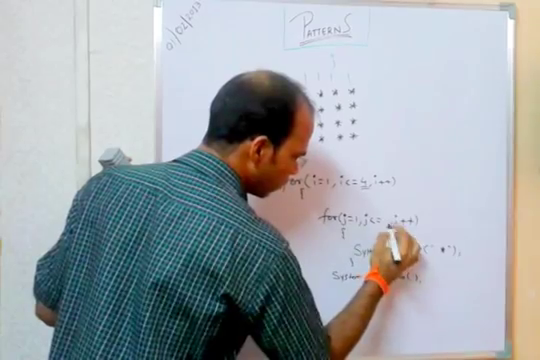 01/02/2013
PATTERNS
j
1 1 1 1
* * *
* * *
* * *
* * *
for(i=1, i<=4, i++)
{
for(j=1, j<= , j++)
{
Sys (" *");
}
System ();